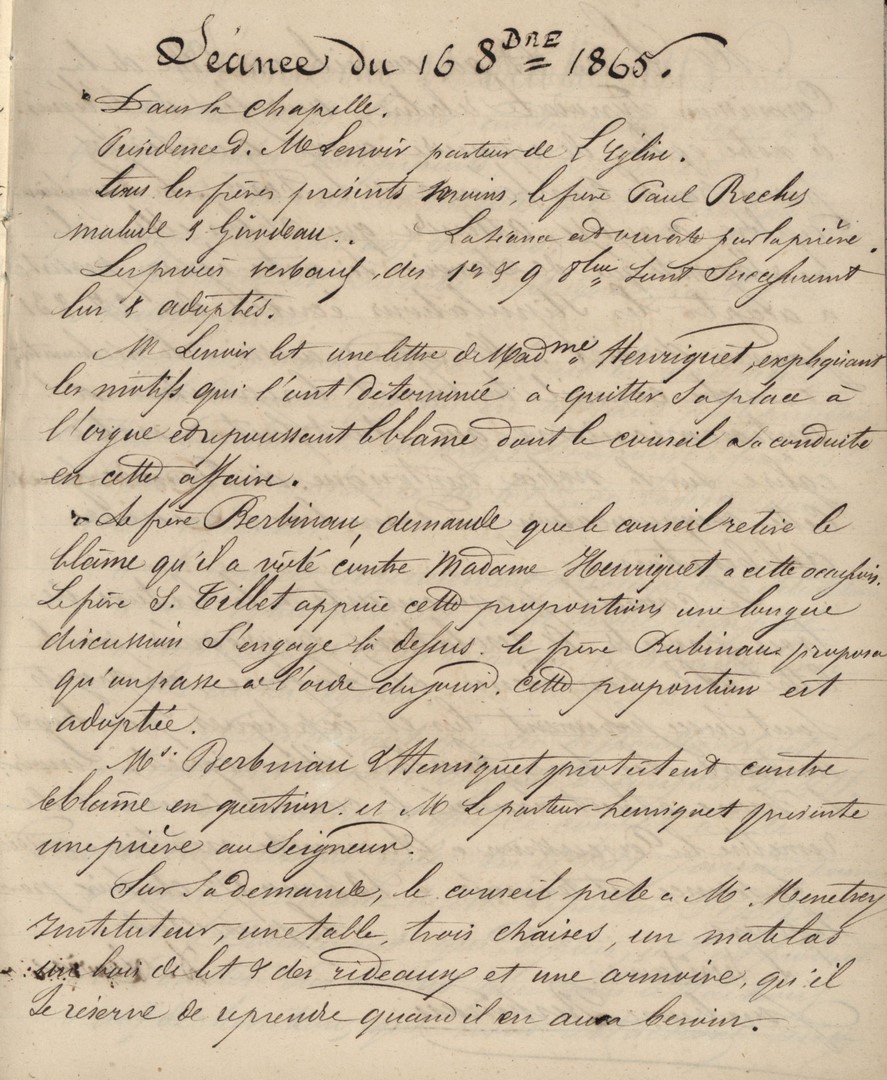 Séance du 16 8BRE 1865.
Dans la chapelle.
Présidence d. Mr Lenoir pasteur de l'Eglise.
tous les frères présents moins, le frère Paul
malade & Girideau.. La séance est ouverte par la prière.
Les procès verbaux, des 1er & 9 8bre sont
lus & adoptés.
Mr Lenoir lit une lettre de Madme Henriquet, expliquant
les motifs qui l'ont determinée à quitter sa place à
l'orgue et repoussant le blâme dont le conseil a sa conduite
en cette affaire.
Le frère Berbinau, demande que le conseil retire le
blâme qu'il a voté contre Madame Henriquet a cette occasion.
Le frère S. Tillet appuie cette propositions une longue
discussion s'engage là dessus. le frère Rubinau proposa
qu'on passe à l'ordre du jour. cette proposition est
adoptée.
Mrs. Berbinau & Henriquet protestent contre
le blâme en question. et M le pasteur henriquet présente
une prière au Seigneur.
Sur sa demande, le conseil prête a Mr. Menetrey
Instituteur, une table, trois chaises, un matelas
un bois de lit & des rideaux et une armoire, qu'il
se réserve de reprendre quand il en aura besoin.